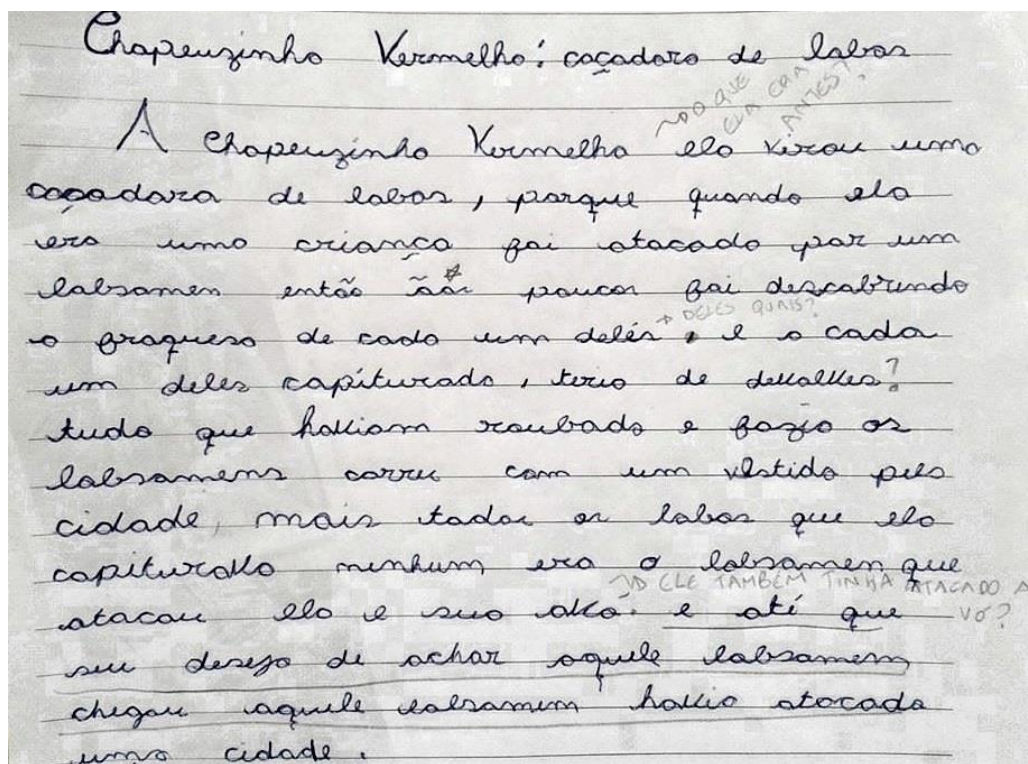 Chapeuzinho Vermelho: caçadora de lobos
→ DO QUE
ELA ERA
ANTES?
A Chapeuzinho Vermelho ela virou uma
caçadora de lobos, porque quando ela
era uma criança foi atacada por um
lobsomen então aos poucos foi descobrindo
→ DELES QUAIS?
a fraqueza de cada um delés, e a cada
um deles capiturado, teria de devolver?
tudo que haviam roubado e fazia os
lobsomens corre com um vestido pela
cidade, mais todos os lobos que ela
capiturava nenhum era o lobsomen que
→ ELE TAMBÉM TINHA ATACADO A
VÓ?
atacou ela e sua avó. e até que
seu desejo de achar aquele lobsomem
chegou aquele lobsomem havia atacado
uma cidade.